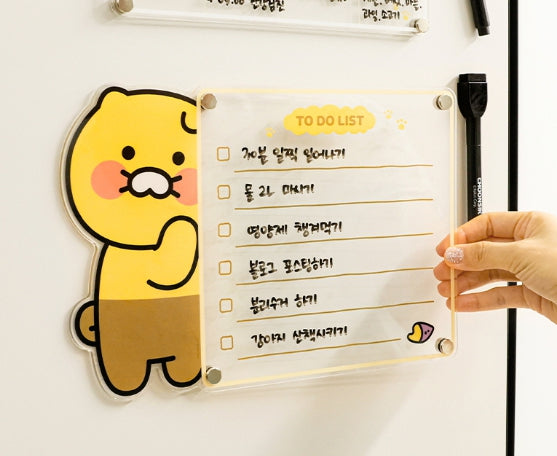 과일, 소고기
TO DO LIST
30분 일찍 일어나기
물 2L 마시기
영양제 챙겨먹기
블로그 포스팅하기
분리수거 하기
강아지 산책시키기